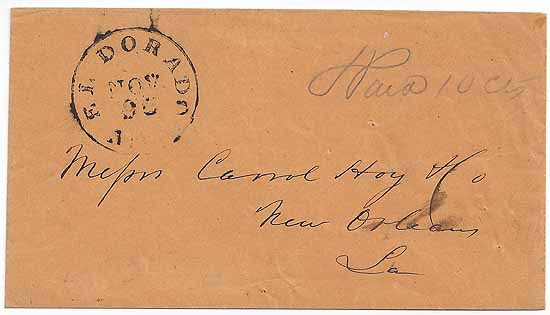 EL DORADO
NOV
Paid 10 Cts
Messrs Carrol Hoy & Co
New Orleans
La